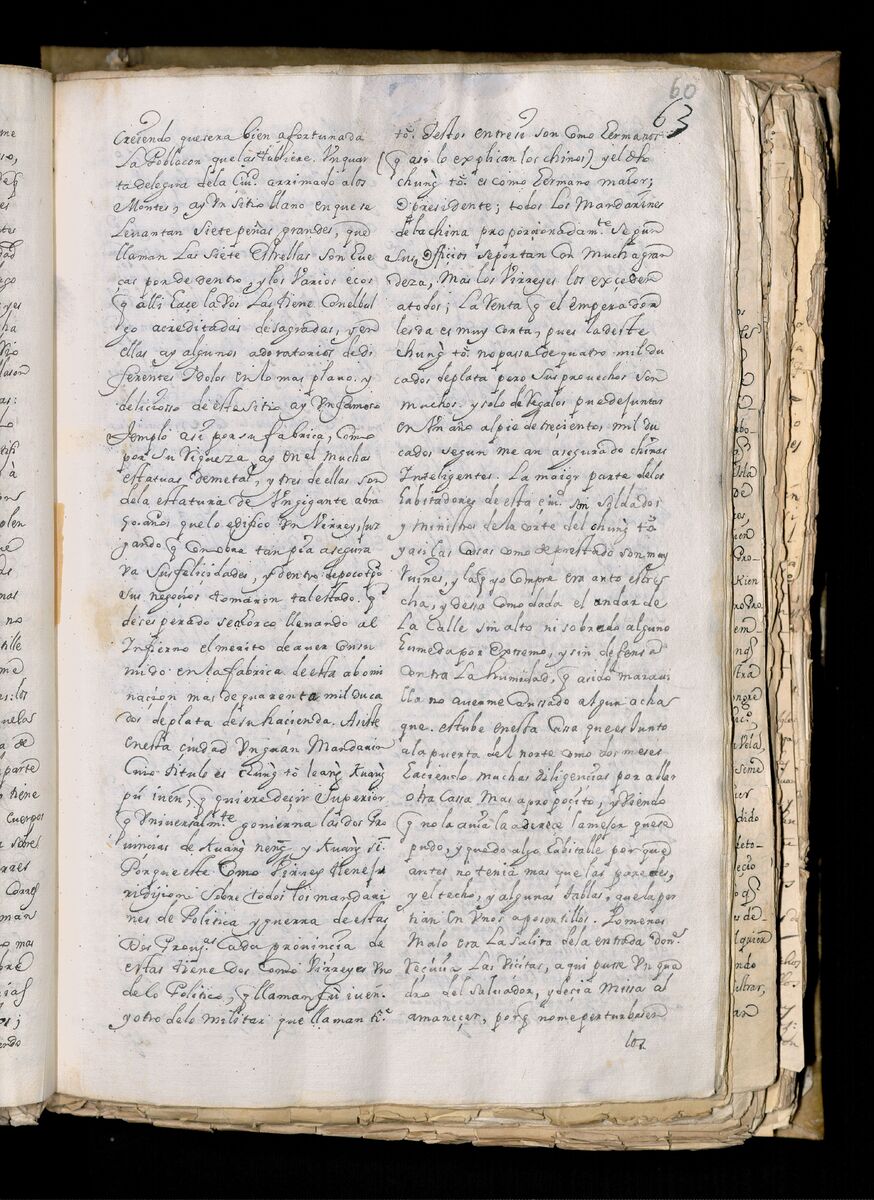 60
63
Creiendo que sera bien afortunada
la Poblacon que las tubiere. Un quar
ta de legua de la Ciud. arrimado a los
Montes, ay Un sitio llano en que se
Levantan Siete peñas grandes, que
llaman Las Siete Estrellas son Cue
cas por de dentro, y los Varios ecos
q̃ alli Eace la vos Las tiene Con el bul
go acreditadas de sagradas, y en
ellas ay algunos adoratorios de di
ferentes Idolos en lo mas plano. y
deliciosso de este Sitio ay Un famoso
Templo asi por su fabrica, Como
por Su Riqueza, ay en el Muchas
estatuas de metal, y tres de ellas son
de la estatura de Un gigante abra
90. años que lo edifico Un Virrey, juz
gando q̃ Con obra tan pia asegura
va Sus felicidades, y dentro de poco tpõ
sus negocios tomaron tal estado. q̃
desesperado se aorco llevando al
Infierno el merito de aver Consu
mido en la fabrica de esta abomi
naçion mas de quarenta mil duca
dos de plata de su haçienda. Asiste
en esta ciudad Un gran Mandarin
Cuio titulo es Chung tõ leang Kuang
pú iuen, q̃ quiere deçir Superior
q̃ Universalmte govierna las dos Pro
vinçias de Kuang neng y Kuang si.
Porque este Como Virrey tiene ju
ridision Sobre todos los mandari
nes de Politica y guerra de estas
Dos Provas. Cada provincia de
estas tiene Dos Como Virreyes Uno
de lo Politico, q̃ llaman fú iuen.
y otro de lo militar que llaman ti.
tõ. Y estos entre si son Como Ermanos
(q̃ asi lo explican los chinos) y el dho
chung tõ. es Como Ermano maior;
O presidente; todos los Mandarines
de la china proporçionadamte Segun
Sus Offiçios se portan Con Mucha gran
deza, Mas los Virreyes los exceden
a todos; La Renta q̃ el emperador
les da es muy Corta, pues la de este
chung tõ. no passa de quatro mil du
cados de plata pero Sus provechos son
muchos. y solo de Regalos puede juntar
en Un año al pie de treçientos mil du
cados segun me an asegurado chinas
Inteligentes. La maior parte de los
habitadores de esta ciud. son Soldados
y ministros de la corte del chung tõ
y asi las casas como de prestado son muy
Ruines, y la q̃ yo Compre era arto estre
cha, y dessa Comodada el andar de
La Calle sin alto ni sobrado alguno
Eumeda por extremo, y sin defensa
Contra La humedad, q̃ a sido maravi
lla no averme Causado algun achas
que. estube en esta Casa que es Junto
a la puerta del norte Como dos meses
Eaciendo muchas diligencias por aller
otra Cassa Mas a proposito, y Viendo
q̃ no la avia la aderece la mejor que se
pudo, y quedo algo habitable porque
antes no tenia mas que las paredes,
y el techo, y algunas tablas, que la par
tian en Unos aposentillos. Lo menos
Malo era La Salita de la entrada done
Reçivia Las Visitas, aqui puse Un qua
dro del Salvador, y decia Missa al
amaneçer, porq̃ no me perturbasen
los